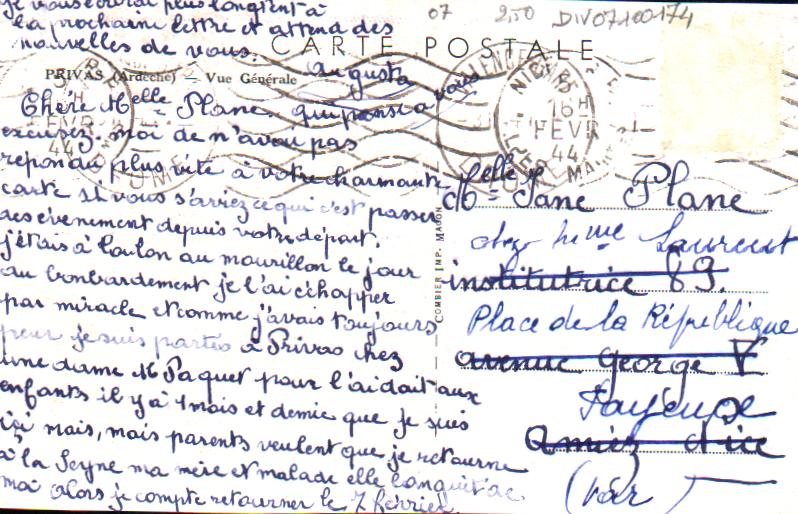 07 2,50 DIV07100174
CARTE POSTALE
PRIVAS (Ardèche) — Vue Générale
Chère Melle Plane.
excusez-moi de n'avoir pas
repondu plus vite à votre charmante
carte si vous s'avriez ce qui c'est passer
des evènement depuis votre départ.
j'étais à Toulon au mourillon le jour
du bonbardement je l'ai échapper
par miracle et comme j'avais toujours
peur je suis partes à Privas chez
une dame M Paquet pour l'aidait aux
enfants il y à 1 mois et demie que je suis
içi mais, mais parents veulent que je retourne
à la Seyne ma mère et malade elle languit de
moi alors je compte retourner le 7 fevrier.
je vous
plus longtent à
la prochaine lettre et attend des
nouvelles de vous.
Augusta
qui pense a vous
NICE
16H
FEVR
44
COMBIER IMP. MACON
Melle Jane Plane
chez Mme Laurent
institutrice 89.
Place de la République
avenue George V
Fayence
Nice
(Var)